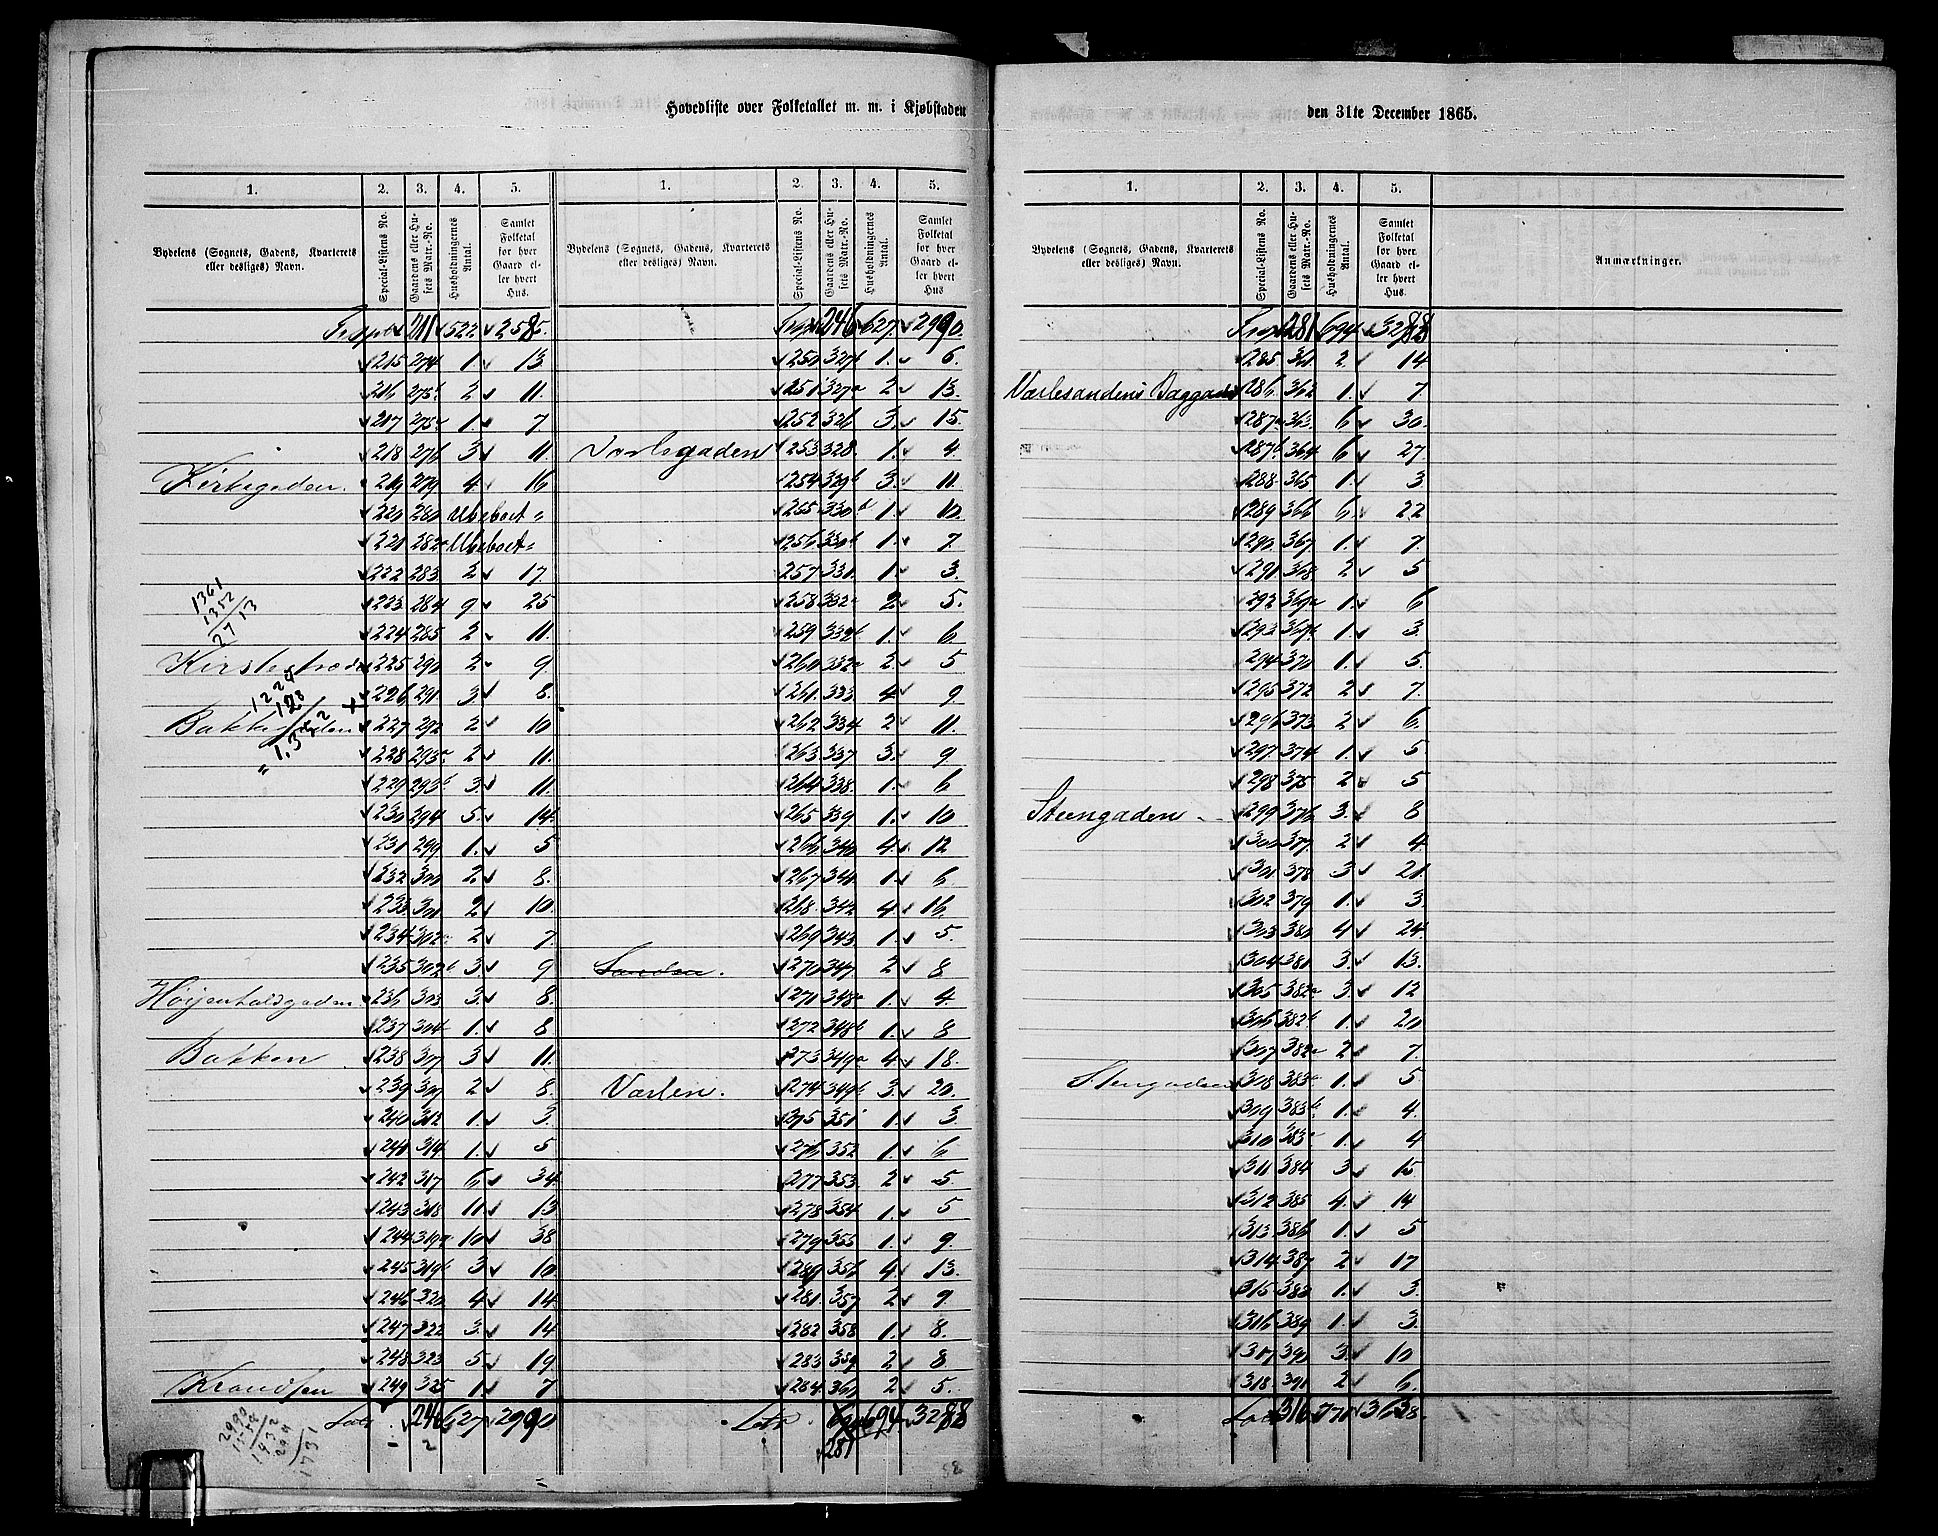 Hovedliste over Folketallet m. m. i Kjøbstaden
den 31te December 1865.
1. 2. 3. 4. 5.
Bydelens (Sognets, Gadens, Kvarterets eller desliges) Navn. Special-Listens No. Gaardens eller Husets Matr.-No. Husholdningernes Antal. Samlet Folketal for hver Gaard eller hvert Hus.
211 522 2585.
215 274 1 13
216 275b 2 11.
217 275a 1 7
218 276 3 11
Kirkegaden. 219 279 4 16
220 280 Ubeboet "
221 282 Ubeboet "
222 283 2 17
223 284 9 25
224 285 2 11.
225 290 2 9
226 291 3 8.
Bakkegaden 227 292 2 10
228 293a 2 11.
229 293b 3 11.
230 294 5 14
231 299 1 5
232 300 2 8.
233 301 2 10.
234 302a 2 7.
235 302b 3 9
236 303 3 8.
237 304 1 8
Bakken 238 307 3 11.
239 309 2 8.
240 312 1 3
241 314 1 5
242 317 6 34
243 318 11 13
244 319a 10 38
245 319b 3 10
246 320 4 14
247 322 3 14
248 323 5 19
249 325 1 7
246 627 2990
1361
1352
2713
1224
128
1.352
1. 2. 3. 4. 5.
Bydelens (Sognets, Gadens, Kvarterets eller desliges) Navn. Special-Listens No. Gaardens eller Husets Matr.-No. Husholdningernes Antal. Samlet Folketal for hver Gaard eller hvert Hus
246 627 2990.
250 327b 1 6.
251 327a 2 13.
252 326 3 15.
253 328 1 4
254 329b 3 11.
255 330 1 10
256 330b 1 7.
257 331 1 3.
258 332 2 5.
259 332b 1 6
260 332a 2 5
261 333 4 9
262 334 2 11.
263 337 3 9
264 338 1 6
265 339 1 10
266 340 4 12
267 341 1 6
268 342 4 16
269 343 1 5.
270 347 2 8
271 348a 1 4
272 348b 1 8
273 349a 4 18.
Varlen. 274 349b 3 20.
275 351 1 3
276 352 1 6
277 353 2 5.
278 354 1 5
279 355 1 9.
280 356 4 13.
281 357 2 9
282 358 1 8.
283 359 2 8
284 360 2 5.
694 3288
281
1. 2. 3. 4. 5.
Bydelens (Sognets, Gadens, Kvarterets eller desliges) Navn. Special-Listens No. Gaardens eller Husets Matr.-No. Husholdningernes Antal. Samlet Folketal for hver Gaard eller hvert Hus. Anmærkninger.
281 694 3288
285 361 2 14
286 362 1 7
287a 363 6 30.
287b 364 6 27
288 365 1 3
289 366 6 22
290 367 1 7.
291 368 2 5
292 369a 1 6
293 369b 1 3.
294 370 1 5.
295 372 2 7.
296 373 2 6.
297 374 1 5
298 375 2 5
Steengaden 299 376 3 8
300 377 2 4.
301 378 3 21
302 379 1 3.
303 380 4 24
304 381 3 13.
305 382a 3 12
306 382b 1 20
307 382c 2 7.
308 383a 1 5
309 383b 1 4.
310 383c 1 4
311 384 3 15
312 385 4 14
313 386 1 5
314 387 2 17
315 388 1 3.
316 389 1 3.
317 390 3 10
318 391 2 6
316 771 3638.